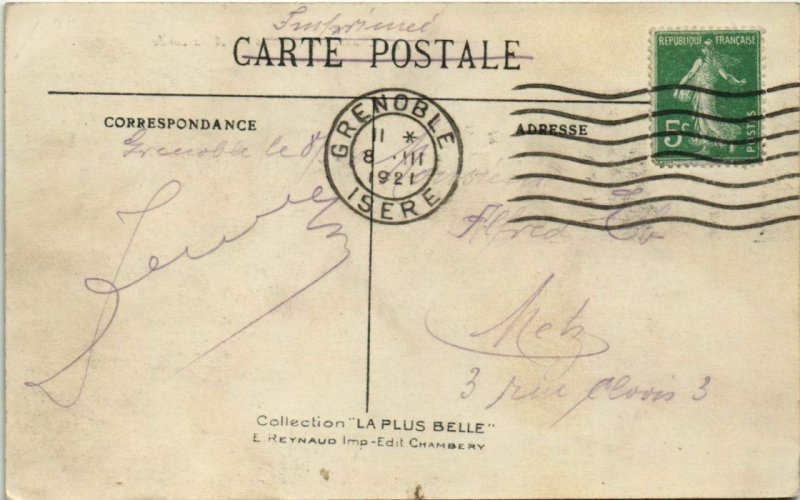 Imprimé
CARTE POSTALE
RÉPUBLIQUE FRANÇAISE
5c
POSTES
GRENOBLE
11 *
8 III
1921
ISERE
CORRESPONDANCE
ADRESSE
Grenoble le 8
Monsieur
Alfred
Metz
3 rue Clovis 3
Collection "LA PLUS BELLE"
E. REYNAUD Imp-Edit CHAMBERY